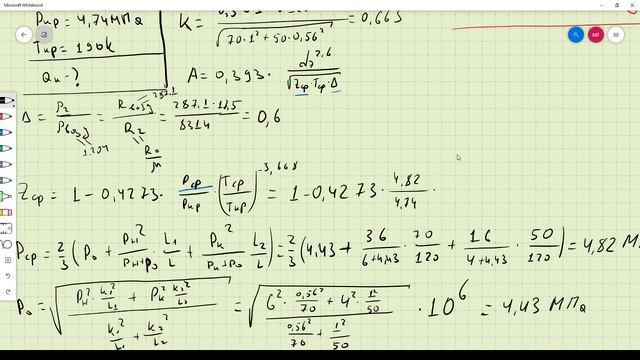 Microsoft Whiteboard
Pкр = 4,74 МПа
Tкр = 190К
Qн - ?
К = 0,665
√(70·1² + 50·0,56²)
A = 0,393 · d₂^2,6 / √(Zср · Tср · Δ)
Δ = ρг / ρвозд = Rвозд / Rг = 287,1 · 17,5 / 8314 = 0,6
287,1
1,204
R₀ / μ
Zср = 1 - 0,4273 · Pср / Pкр · (Tср / Tкр)^-3,668 = 1 - 0,4273 · 4,82 / 4,74 ·
Pср = 2/3 (P₀ + Pн² / (Pн+P₀) · L₁/L + Pк² / (Pк+P₀) · L₂/L) = 2/3 (4,43 + 36 / (6+4,43) · 70/120 + 16 / (4+4,43) · 50/120) = 4,82 М
P₀ = √((Pн² · К₁²/L₁ + Pк² · К₂²/L₂) / (К₁²/L₁ + К₂²/L₂)) = √((6² · 0,56²/70 + 4² · 1²/50) / (0,56²/70 + 1²/50)) · 10⁶ = 4,43 МПа
MF